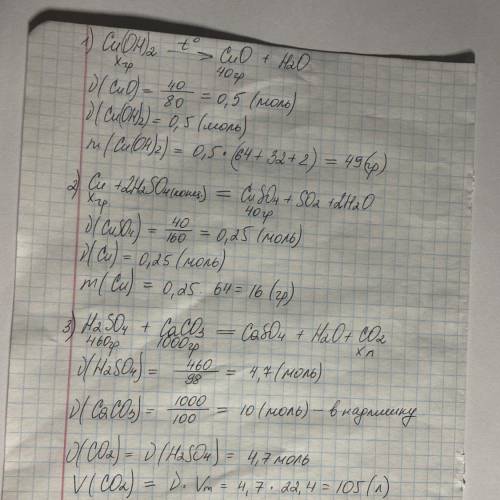 1) Cu(OH)2 t° → CuO + H2O
xгр 40гр
ν(CuO) = 40/80 = 0,5 (моль)
ν(Cu(OH)2) = 0,5 (моль)
m(Cu(OH)2) = 0,5 · (64 + 32 + 2) = 49 (гр)
2) Cu + 2H2SO4(конц) = CuSO4 + SO2 + 2H2O
xгр 40гр
ν(CuSO4) = 40/160 = 0,25 (моль)
ν(Cu) = 0,25 (моль)
m(Cu) = 0,25 · 64 = 16 (гр)
3) H2SO4 + CaCO3 = CaSO4 + H2O + CO2
460гр 1000гр xл
ν(H2SO4) = 460/98 = 4,7 (моль)
ν(CaCO3) = 1000/100 = 10 (моль) – в
ν(CO2) = ν(H2SO4) = 4,7 моль
V(CO2) = ν · Vm = 4,7 · 22,4 = 105 (л)